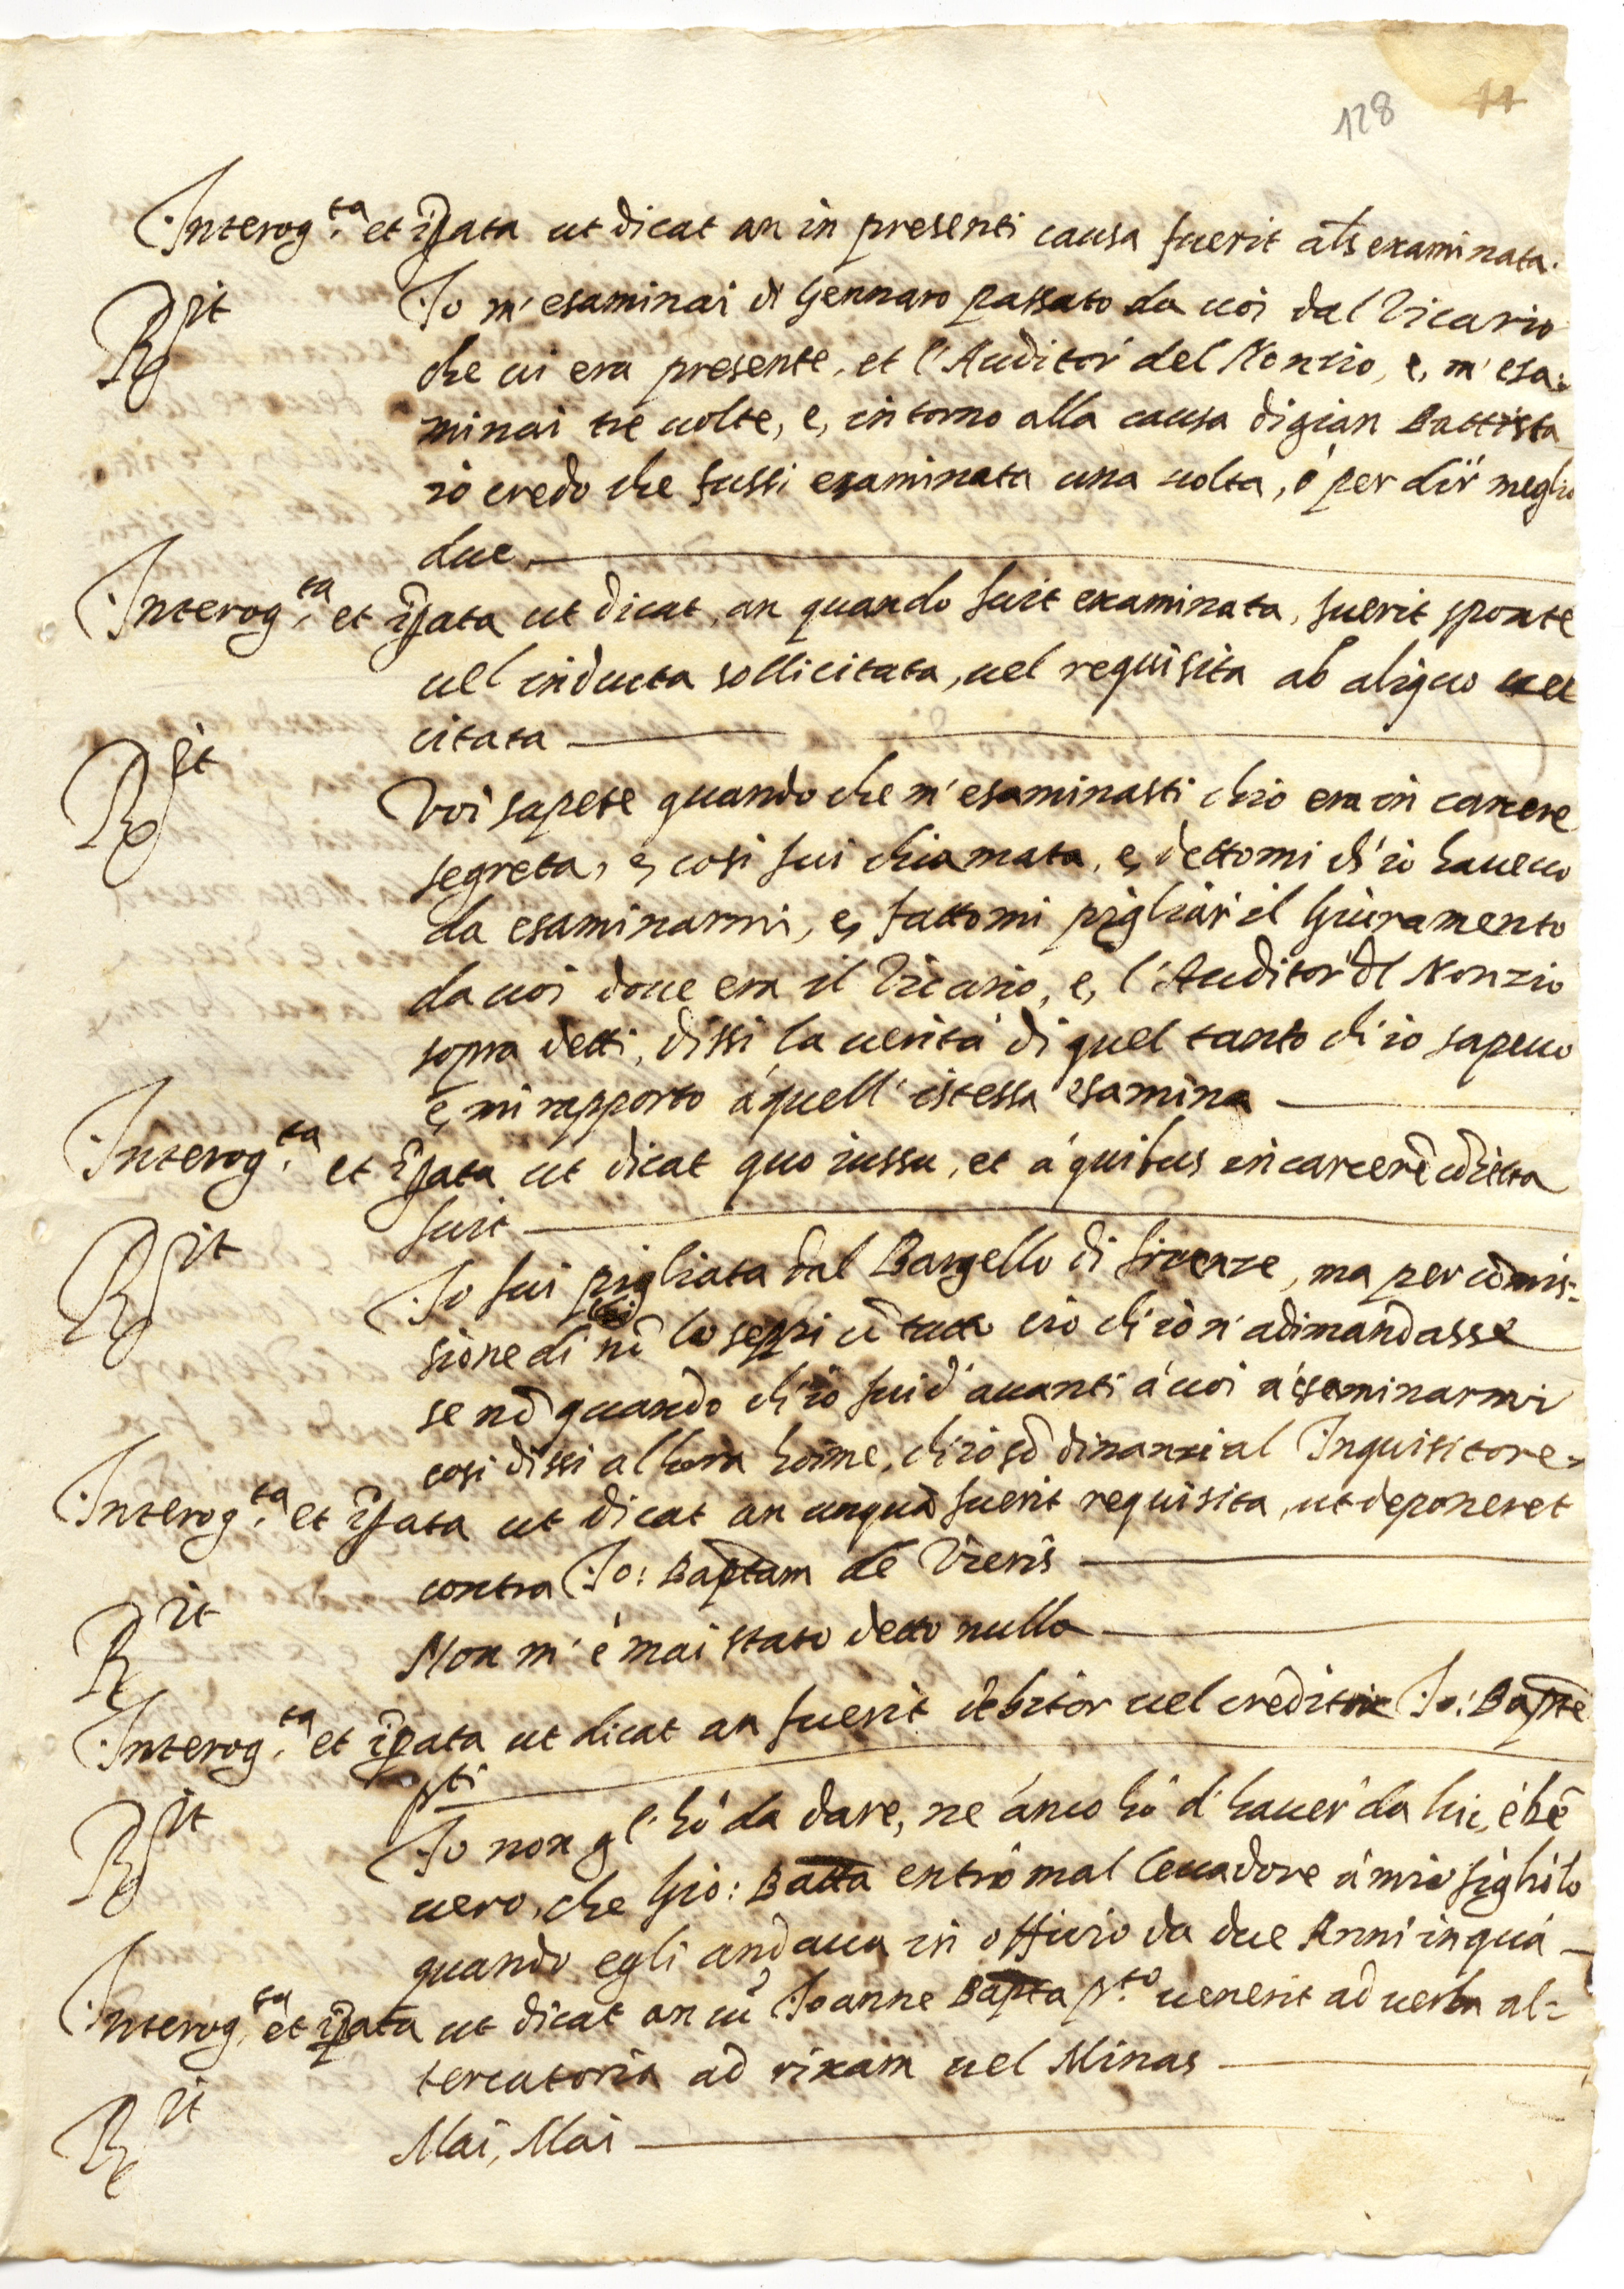 128 44
Interog.ta et ip̃ata ut dicat an in presenti causa fuerit al̃s examinata.
Rit Io m'esaminai di Gennaro passato da uoi dal Vicario
che ui era presente, et l'Auditor' del Nonzio, e, m'esa:
minai tre uolte, e, intorno alla causa di gian Battista
io credo che fussi examinata una uolta, ó per dir' meglio
due
Interog.ta et ip̃ata ut dicat, an quando fuit examinata, fuerit sponte
uel inducta sollicitata, uel requisita ab aliquo uel
citata
Rit Voi sapete quando che m'esaminasti ch'io era in carcere
segreta, e, cosi fui chiamata, e, dettomi ch'io haueuo
da esaminarmi, e, fattomi pigliar' il Giuramento
da uoi doue era il Vicario, e, l'Auditor' dl Nonzio
sopra detti, dissi la ueritá di quel tanto ch'io sapeuo
e, mi rapporto á quell'istessa esamina
Interog.ta et ip̃ata ut dicat quo iussu, et á quibus in carcerẽ cõducta
fuit
Rit Io fui pigliata dal Bargello di firenze, ma per cõmis:
sione di chi nõ lo seppi cõ tutto ció ch'io n'adimandasse
se nõ quando ch'io fui d'auanti á uoi a' eseminarmi
cosi dissi allora hoime, ch'io sõ dinanzi al Inquisitore
Interog.ta et ip̃ata ut dicat an unquã fuerit requisita, ut deponeret
contra Io: Bap̃tam de Vieris
Rit Non m'é mai stato detto nulla
Interog.ta et ip̃ata ut dicat an fuerit debitor uel creditrix Io: Bap̃te
p̃ti
Rit Io non gl'hó da dare, ne ánco hó d'hauer' da lui, é bẽ
uero, che Gio: Batta entró mal leuadore á mio figliólo
quando egli andaua in offitio da due Anni in quá
Interog.ta et ip̃ata ut dicat an cũ Joanne Bap̃ta p.to uenerit ad uerba al=
tercatoria ad rixam uel Minas
Rit Mai, Mai